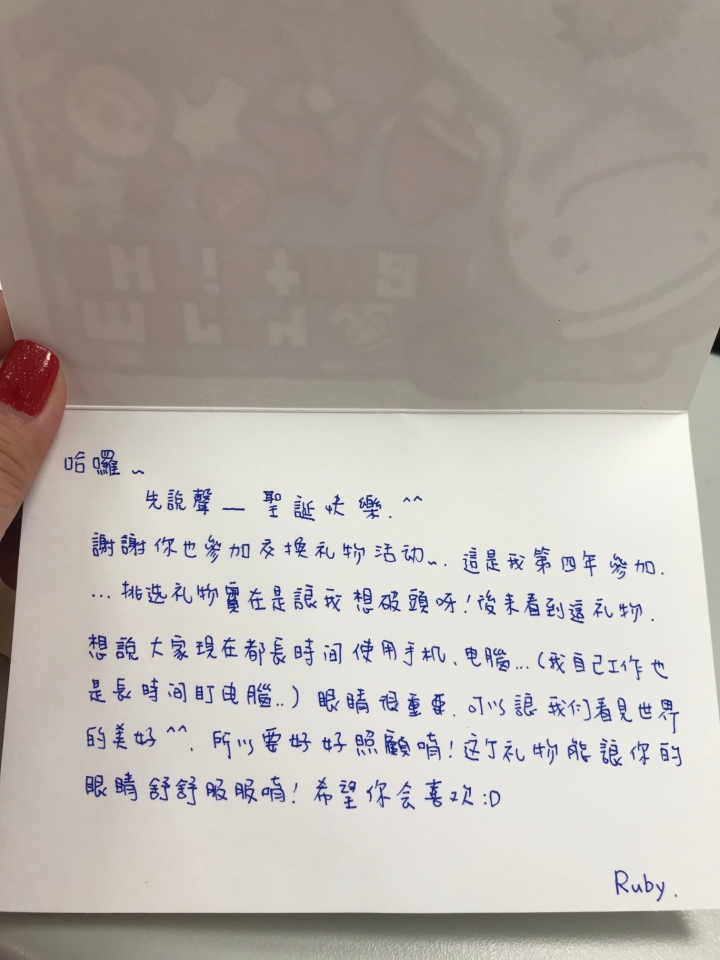 哈囉~
先說聲—聖誕快樂.^^
謝謝你也參加交換礼物活动~. 這是我第四年參加.
...挑选礼物實在是讓我想破頭呀!後来看到這礼物.
想說大家現在都長時间使用手机、电腦...(我自己工作也
是長時间盯电腦..)眼睛很重要.可以讓我们看見世界
的美好^^. 所以要好好照顧唷!这个礼物能讓你的
眼睛舒舒服服唷!希望你会喜欢:D
Ruby.